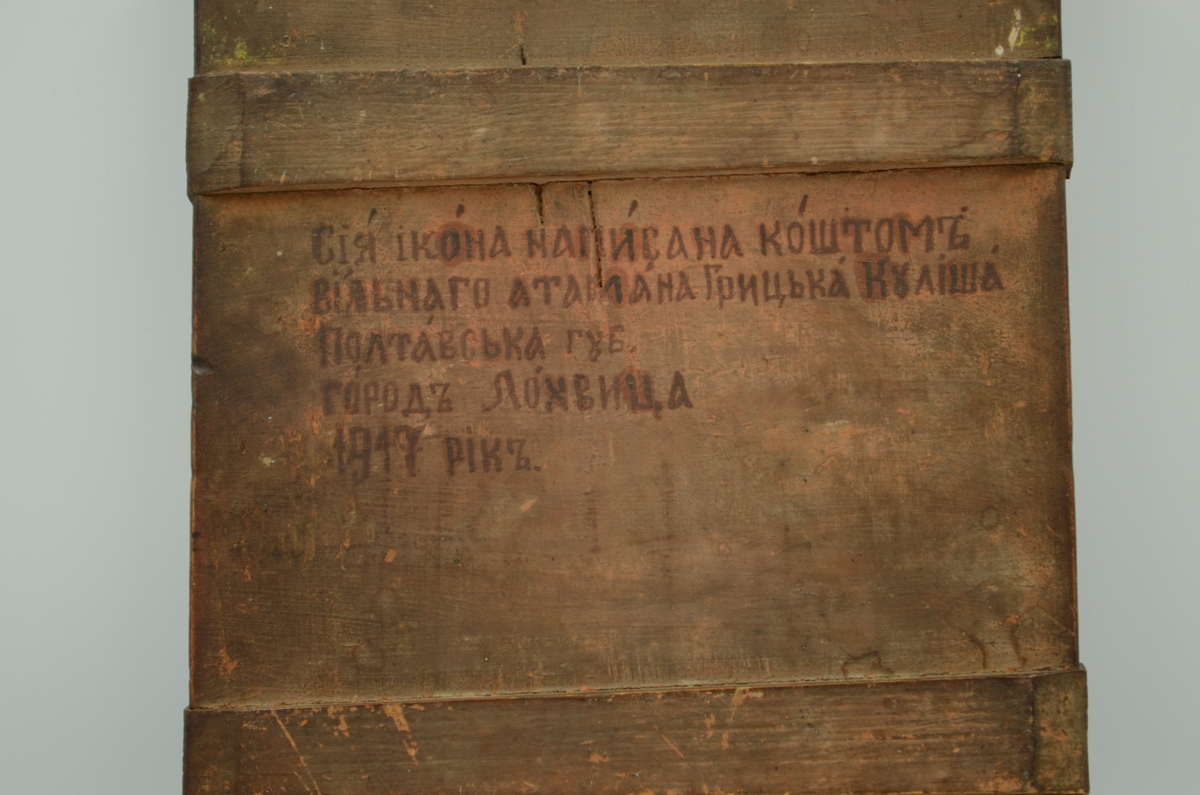 Сія́ іко́на напи́сана ко́штомъ
вїльнаго атама́на Грицька́ Кулі́ша
Полта́вська губ.
го́родъ Ло́хвица
1917 рікъ.